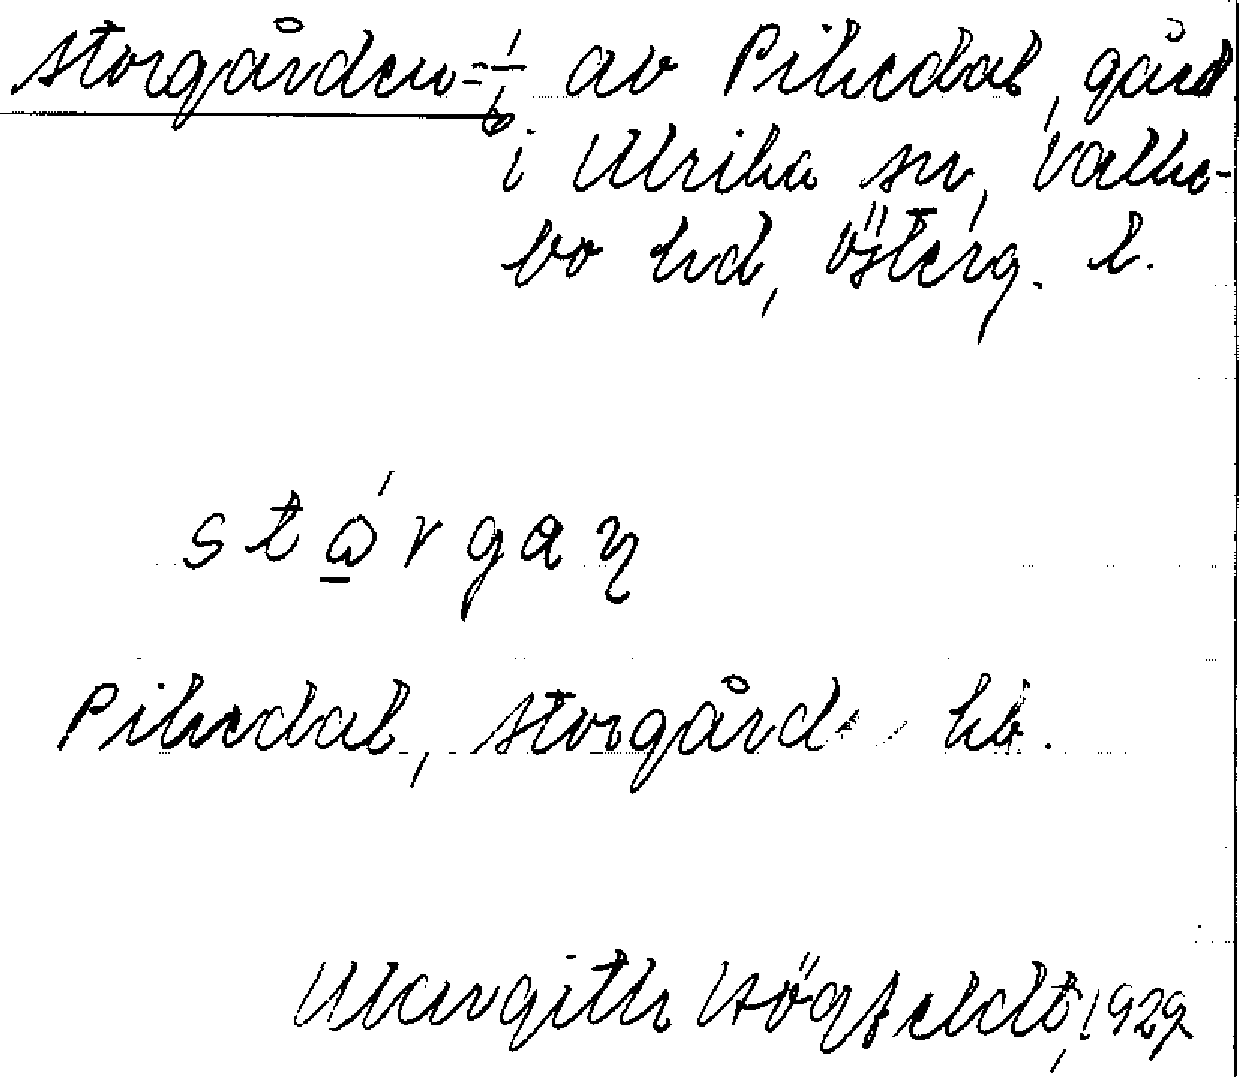 Storgården=1/6 av Pikedal, gård
i Ulrika sn, Valke-
bo hd, Österg. l.
stǫ́rgaṇ
Pikedal, Storgård hb.
Margith Högfeldt, 1929